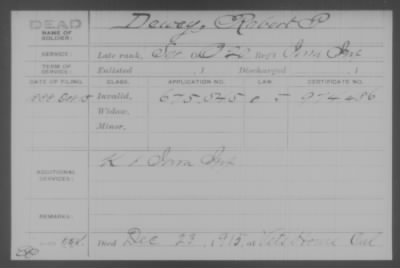 DEAD
NAME OF SOLDIER:
Dewey, Robert P
SERVICE:
Late rank, Ser Co D 20 Reg't Iowa Inf
TERM OF SERVICE:
Enlisted , 1 Discharged , 1
DATE OF FILING. CLASS. APPLICATION NO. LAW. CERTIFICATE NO.
1888 Invalid, 675,545 974486
Widow,
Minor,
ADDITIONAL SERVICES:
K 1 Iowa Inf
REMARKS:
Died Dec 23, 1915, at Vets Home Cal